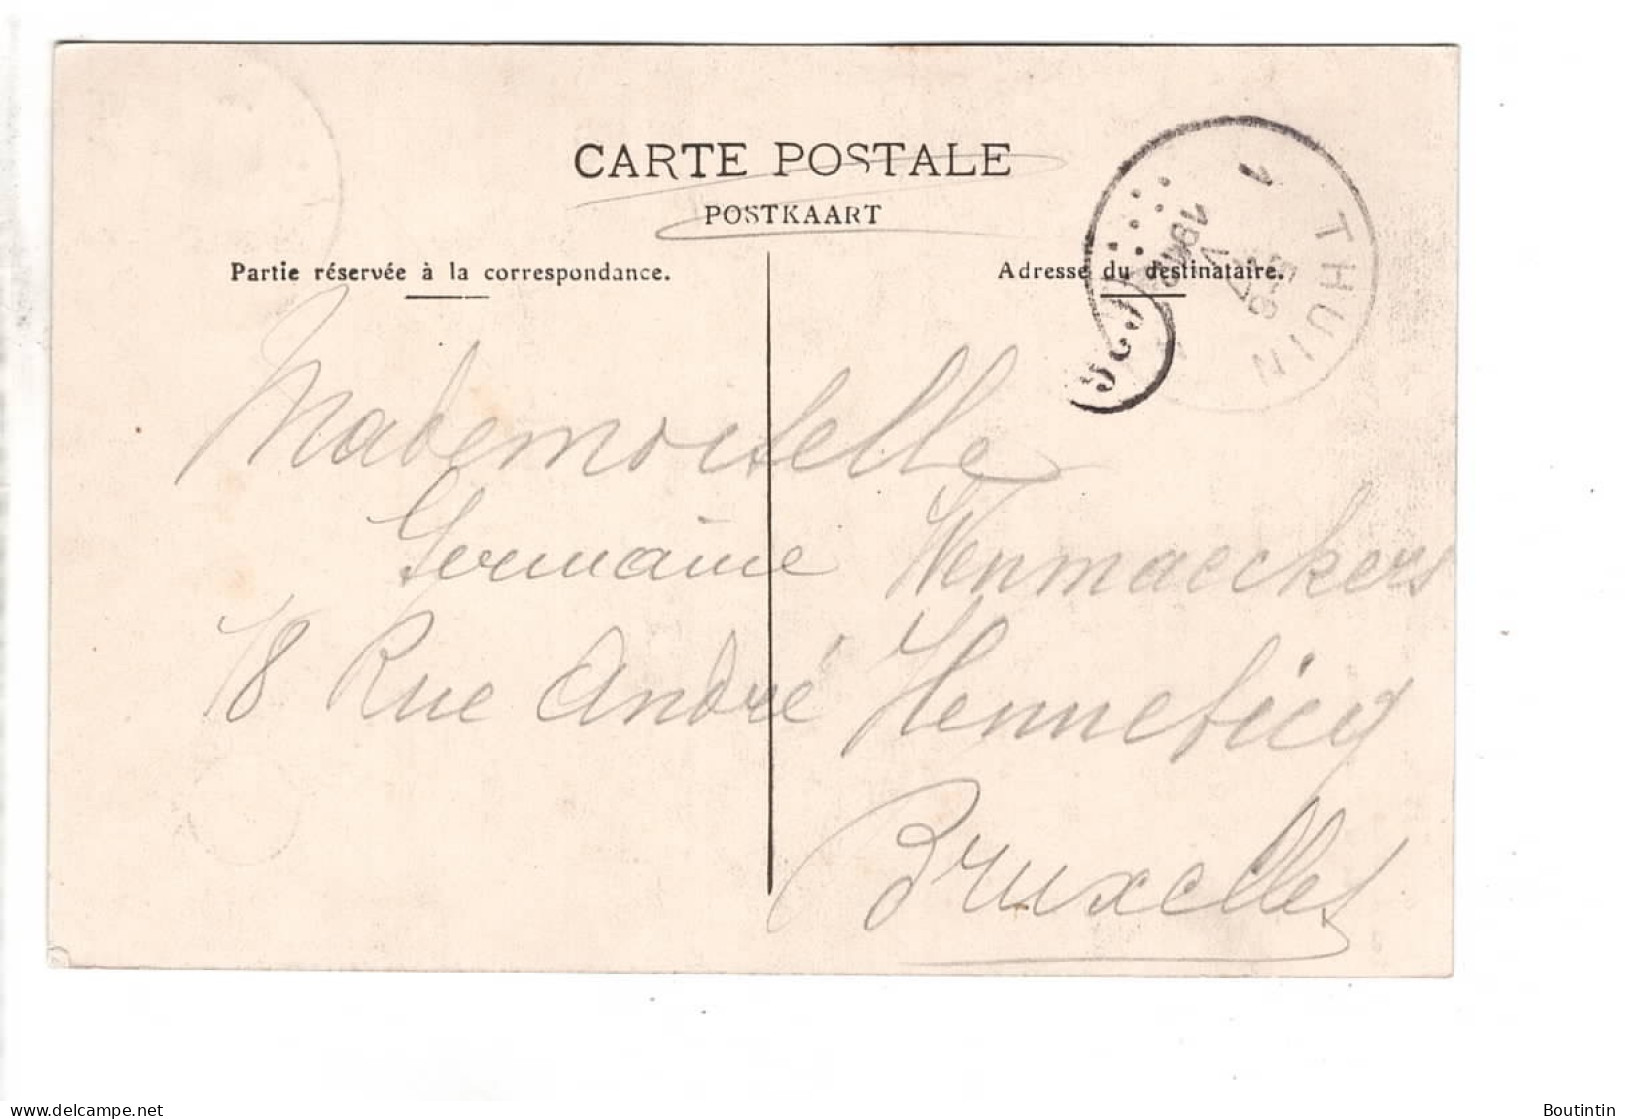 CARTE POSTALE
POSTKAART
Partie réservée à la correspondance.
Adresse du destinataire.
1 THUIN
Mademoiselle
Germaine Wenmaeckers
18 Rue André Hennebicq
Bruxelles
delcampe.net
Boutintin